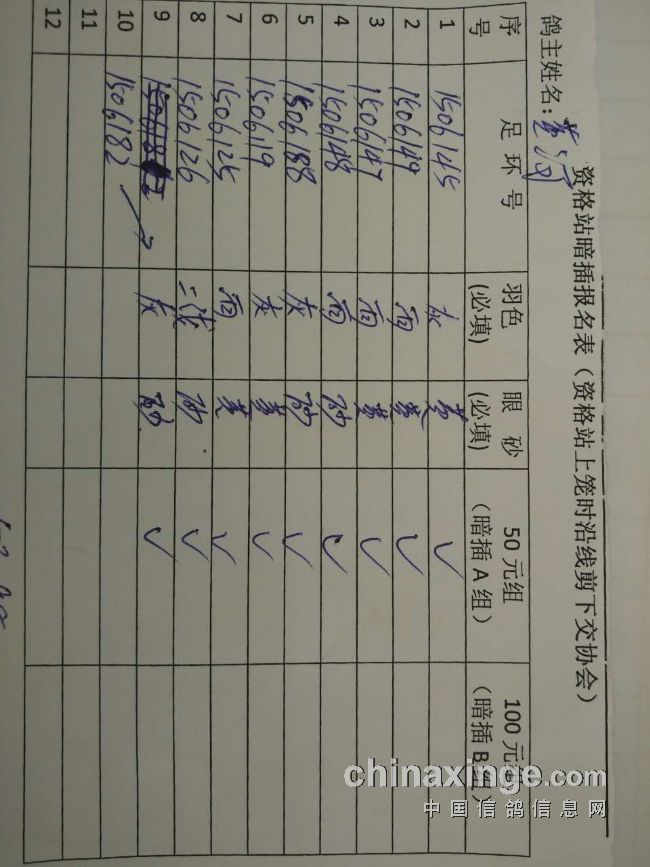 资格站暗插报名表（资格站上笼时沿线剪下交协会）
鸽主姓名：
序号 足环号 羽色（必填） 眼砂（必填） 50元组（暗插A组） 100元组（暗插B组）
1 1506145 灰 黄 ✓
2 1506149 雨 黄 ✓
3 1506147 雨 黄 ✓
4 1506148 雨 砂 ✓
5 1506188 灰 砂 ✓
6 150619 灰 黄 ✓
7 1506125 雨 黄 ✓
8 1506126 砂 ✓
9 灰 砂 ✓
10 1506182
11
12
chinaxinge.com
中国信鸽信息网